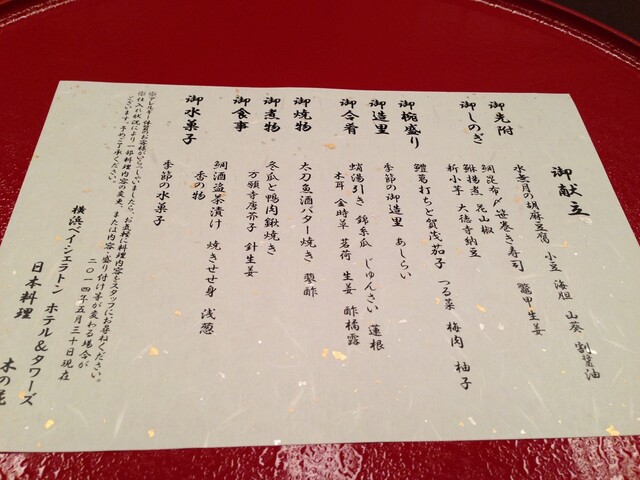 御献立
御先附
水無月の胡麻豆腐 小豆 海胆 山葵 割醤油
御しのぎ
鯛昆布〆笹巻き寿司 鼈甲生姜
鮴揚煮 花山椒
新小芋 大徳寺納豆
御椀盛り
鱧葛打ちと賀茂茄子 つる菜 梅肉 柚子
御造里
季節の御造里 あしらい
御合肴
蛸湯引き 錦糸瓜 じゅんさい 蓮根
木耳 金時草 茗荷 生姜 酢橘露
御焼物
太刀魚酒バター焼き 蓼酢
御煮物
冬瓜と鴨肉鍬焼き
万願寺唐芥子 針生姜
御食事
鯛酒盗茶漬け 焼きせせ身 浅葱
香の物
御水菓子
季節の水菓子
※アレルギー体質のお客様がいらっしゃいましたら、お気軽に料理内容をスタッフにお尋ねください。
※仕入れ状況により一部料理内容の変更、または内容・盛り付け等が変わる場合が
ございます。予めご了承ください。
二〇一四年五月三十日現在
横浜ベイシェラトン ホテル&タワーズ
日本料理 木の花